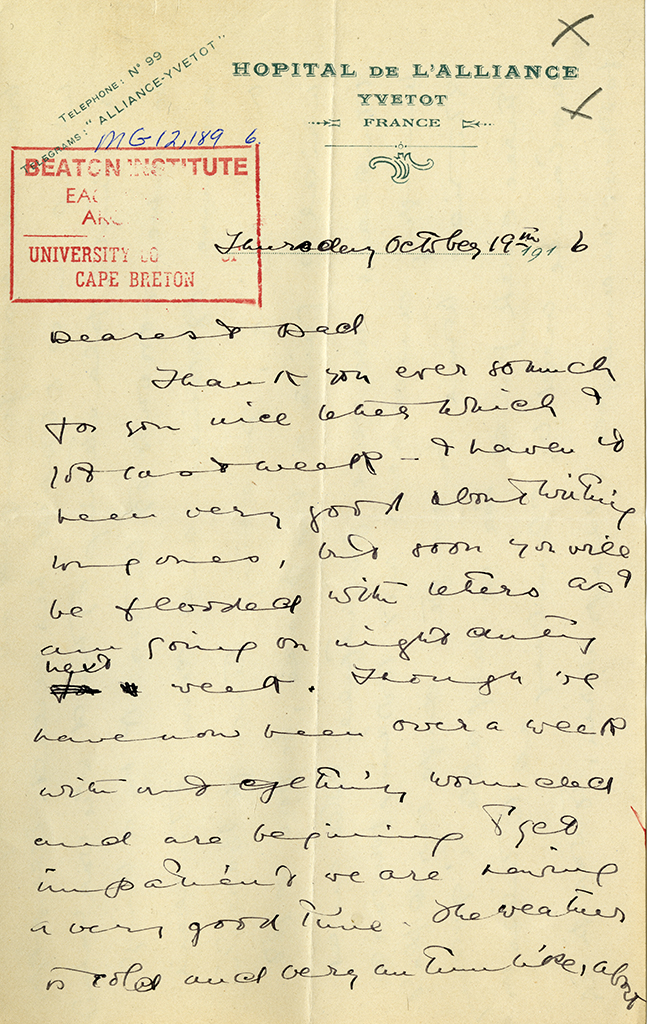 TELEPHONE: Nº 99
TELEGRAMS: "ALLIANCE-YVETOT"
HOPITAL DE L'ALLIANCE
YVETOT
FRANCE
MG 12,189 6.
BEATON INSTITUTE
EAC
ARC
UNIVERSITY CO OF
CAPE BRETON
Thursday October 19th 1916
Dearest Dad
Thank you ever so much
for you nice letter which I
got last week – I haven't
been very good about writing
long ones, but soon you will
be flooded with letters as I
am going on night duty
next week. Though we
have now been over a week
without getting wounded
and are begining to get
impatient we are having
a very good time. The weather
is cold and very autumnlike, about